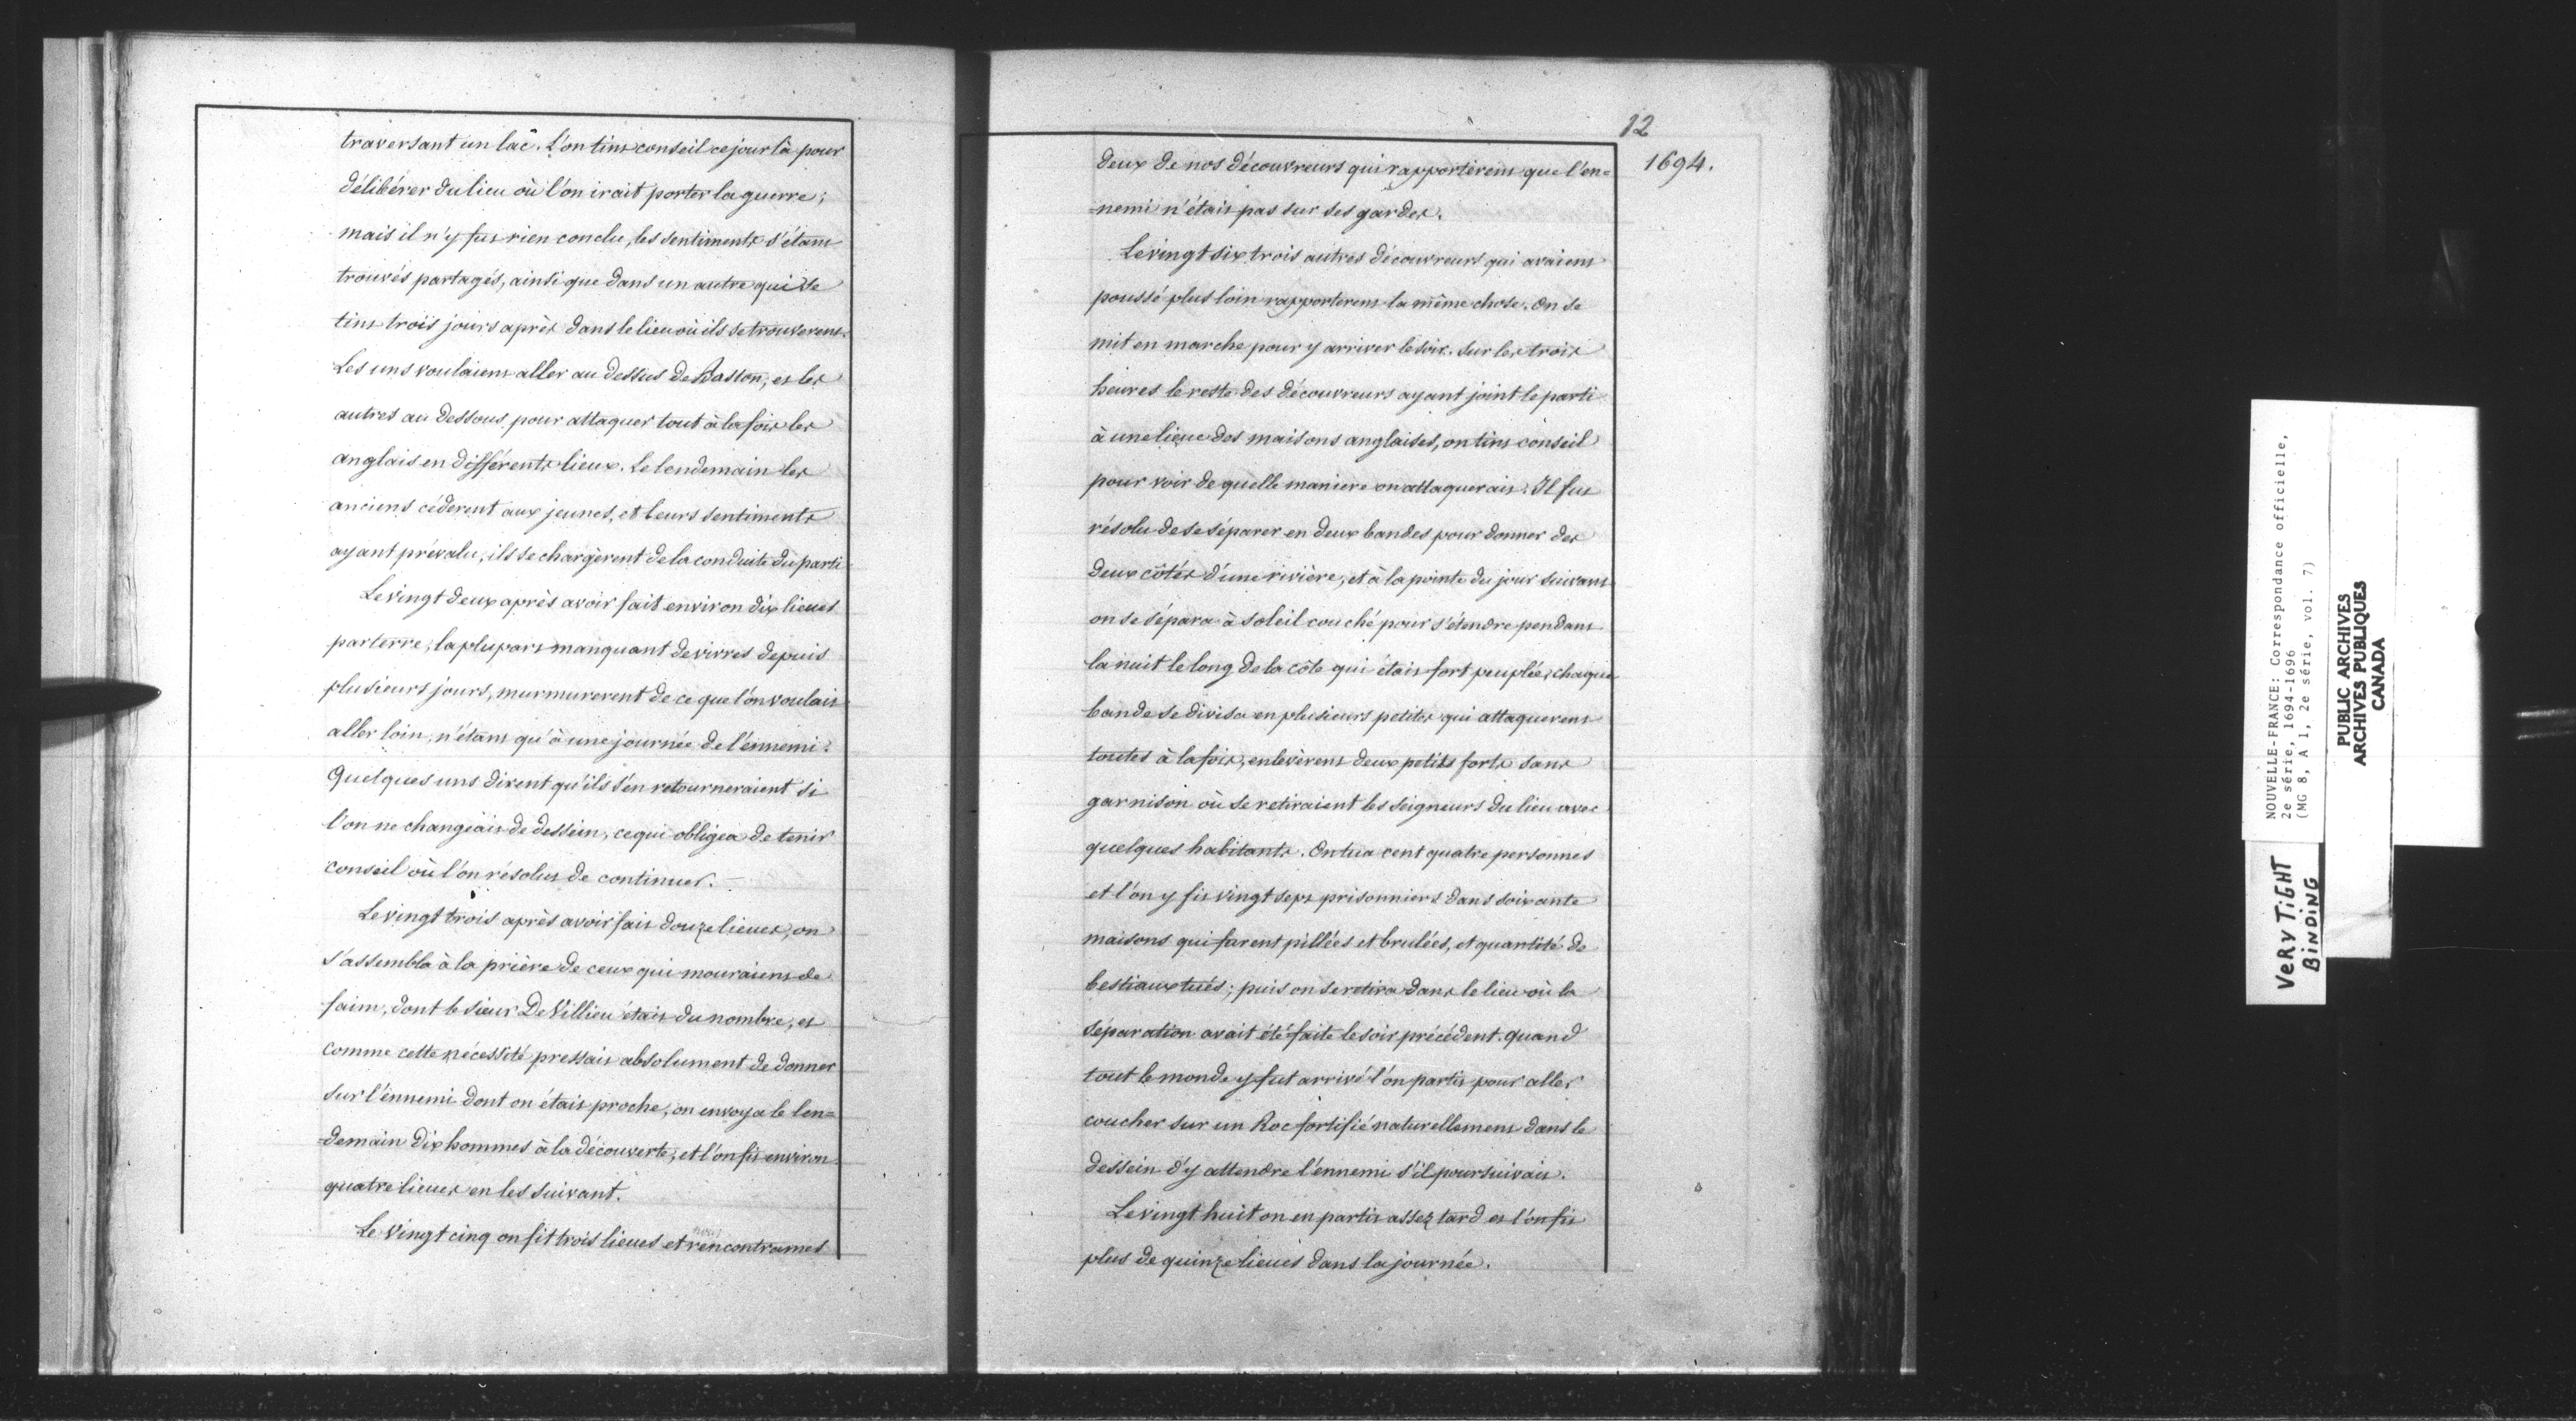 traversant un lac. L'on tint conseil ce jour là pour
délibérer du lieu où l'on irait porter la guerre;
mais il n'y fut rien conclu, les sentiments s'étant
trouvés partagés, ainsi que dans un autre qui se
tint trois jours après dans le lieu où ils se trouverent.
Les uns voulaient aller au dessus de Baston, et les
autres au dessous pour attaquer tout à la fois les
anglais en différents lieux. Le lendemain les
anciens céderent aux jeunes, et leurs sentiments
ayant prévalu, ils se chargèrent de la conduite du parti
Le vingt deux après avoir fait environ dix lieues
par terre, la plupart manquant de vivres depuis
plusieurs jours, murmurerent de ce que l'on voulait
aller loin, n'étant qu'à une journée de l'ennemi.
Quelques uns dirent qu'ils s'en retourneraient si
l'on ne changeait de dessein, ce qui obligea de tenir
conseil où l'on résolut de continuer.
Le vingt trois après avoir fait douze lieues, on
s'assembla à la prière de ceux qui mouraient de
faim, dont le sieur De Villieu était du nombre, et
comme cette nécessité pressait absolument de donner
sur l'ennemi dont on était proche, on envoya le len=
=demain dix hommes à la découverte, et l'on fit environ
quatre lieues en les suivant.
Le Vingt cinq on fit trois lieues et nous rencontrames
12
1694.
deux de nos découvreurs qui rapportèrent que l'en=
=nemi n'était pas sur ses gardes.
Le vingt six trois autres découvreurs qui avaient
poussé plus loin rapporterent la même chose. On se
mit en marche pour y arriver le soir. Sur les trois
heures le reste des découvreurs ayant joint le parti
à une lieue des maisons anglaises, on tint conseil
pour voir de quelle maniere on attaquerait. Il fut
résolu de se séparer en deux bandes pour donner des
deux côtés d'une rivière, et à la pointe du jour suivant
on se sépara à soleil couché pour s'étendre pendant
la nuit le long de la côte qui était fort peuplée, chaque
bande se divisa en plusieurs petites qui attaquerent
toutes à la fois, enlevèrent deux petits forts sans
garnison où se retiraient les seigneurs du lieu avec
quelques habitants. On tua cent quatre personnes
et l'on y fit vingt sept prisonniers dans soixante
maisons qui furent pillées et brulées, et quantité de
bestiaux tués; puis on se retira dans le lieu où la
séparation avait été faite le soir précédent. quand
tout le monde y fut arrivé l'on partit pour aller
coucher sur un Roc fortifié naturellement dans le
dessein d'y attendre l'ennemi s'il poursuivait.
Le vingt huit on en partit assez tard et l'on fit
plus de quinze lieues dans la journée.
NOUVELLE-FRANCE: Correspondance officielle,
2e série, 1694-1696
(MG 8, A 1, 2e série, vol. 7)
PUBLIC ARCHIVES
ARCHIVES PUBLIQUES
CANADA
VERY TIGHT
BINDING